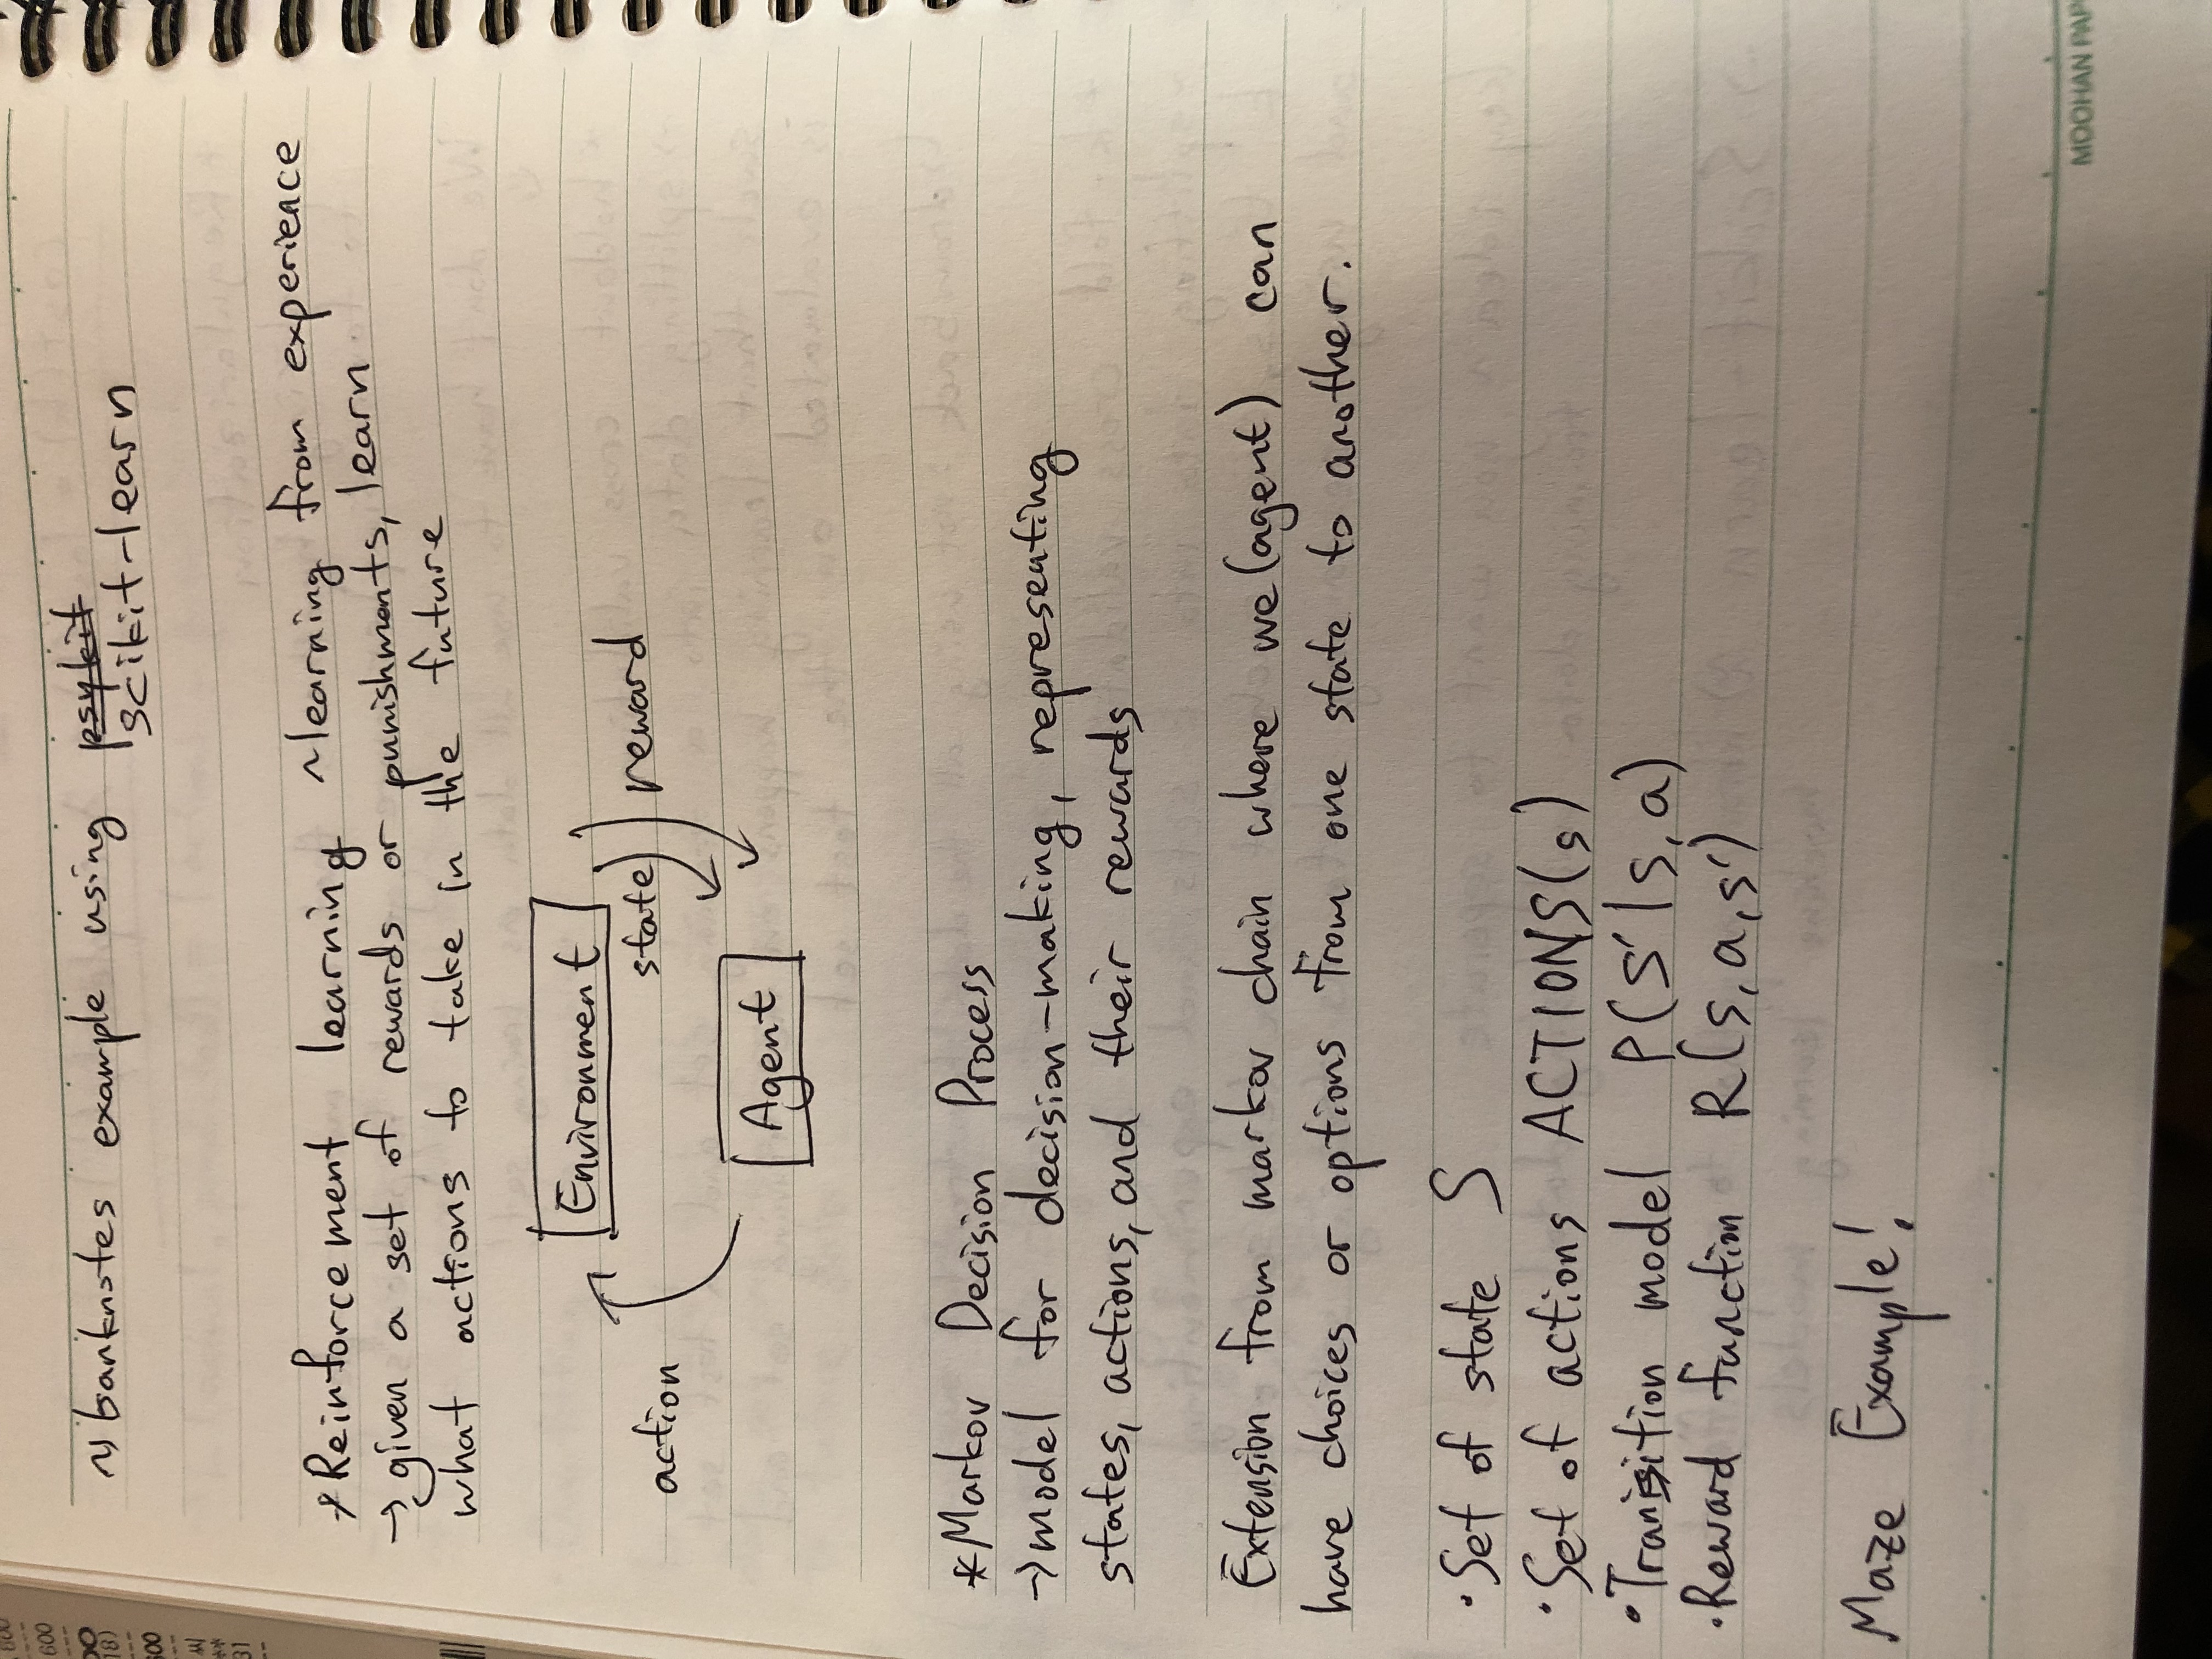 ~) banknotes example using psykit
scikit-learn
*Reinforcement learning ~learning from experience
→ given a set of rewards or punishments, learn
what actions to take in the future
Environment
state
reward
action
Agent
*Markov Decision Process
→ model for decision-making, representing
states, actions, and their rewards
Extension from markov chain where we (agent) can
have choices or options from one state to another.
· Set of state S
· Set of actions ACTIONS(s)
· Transition model P(s' | s, a)
· Reward function R(s, a, s')
Maze Example!
MOOHAN PAP
600
18)
31